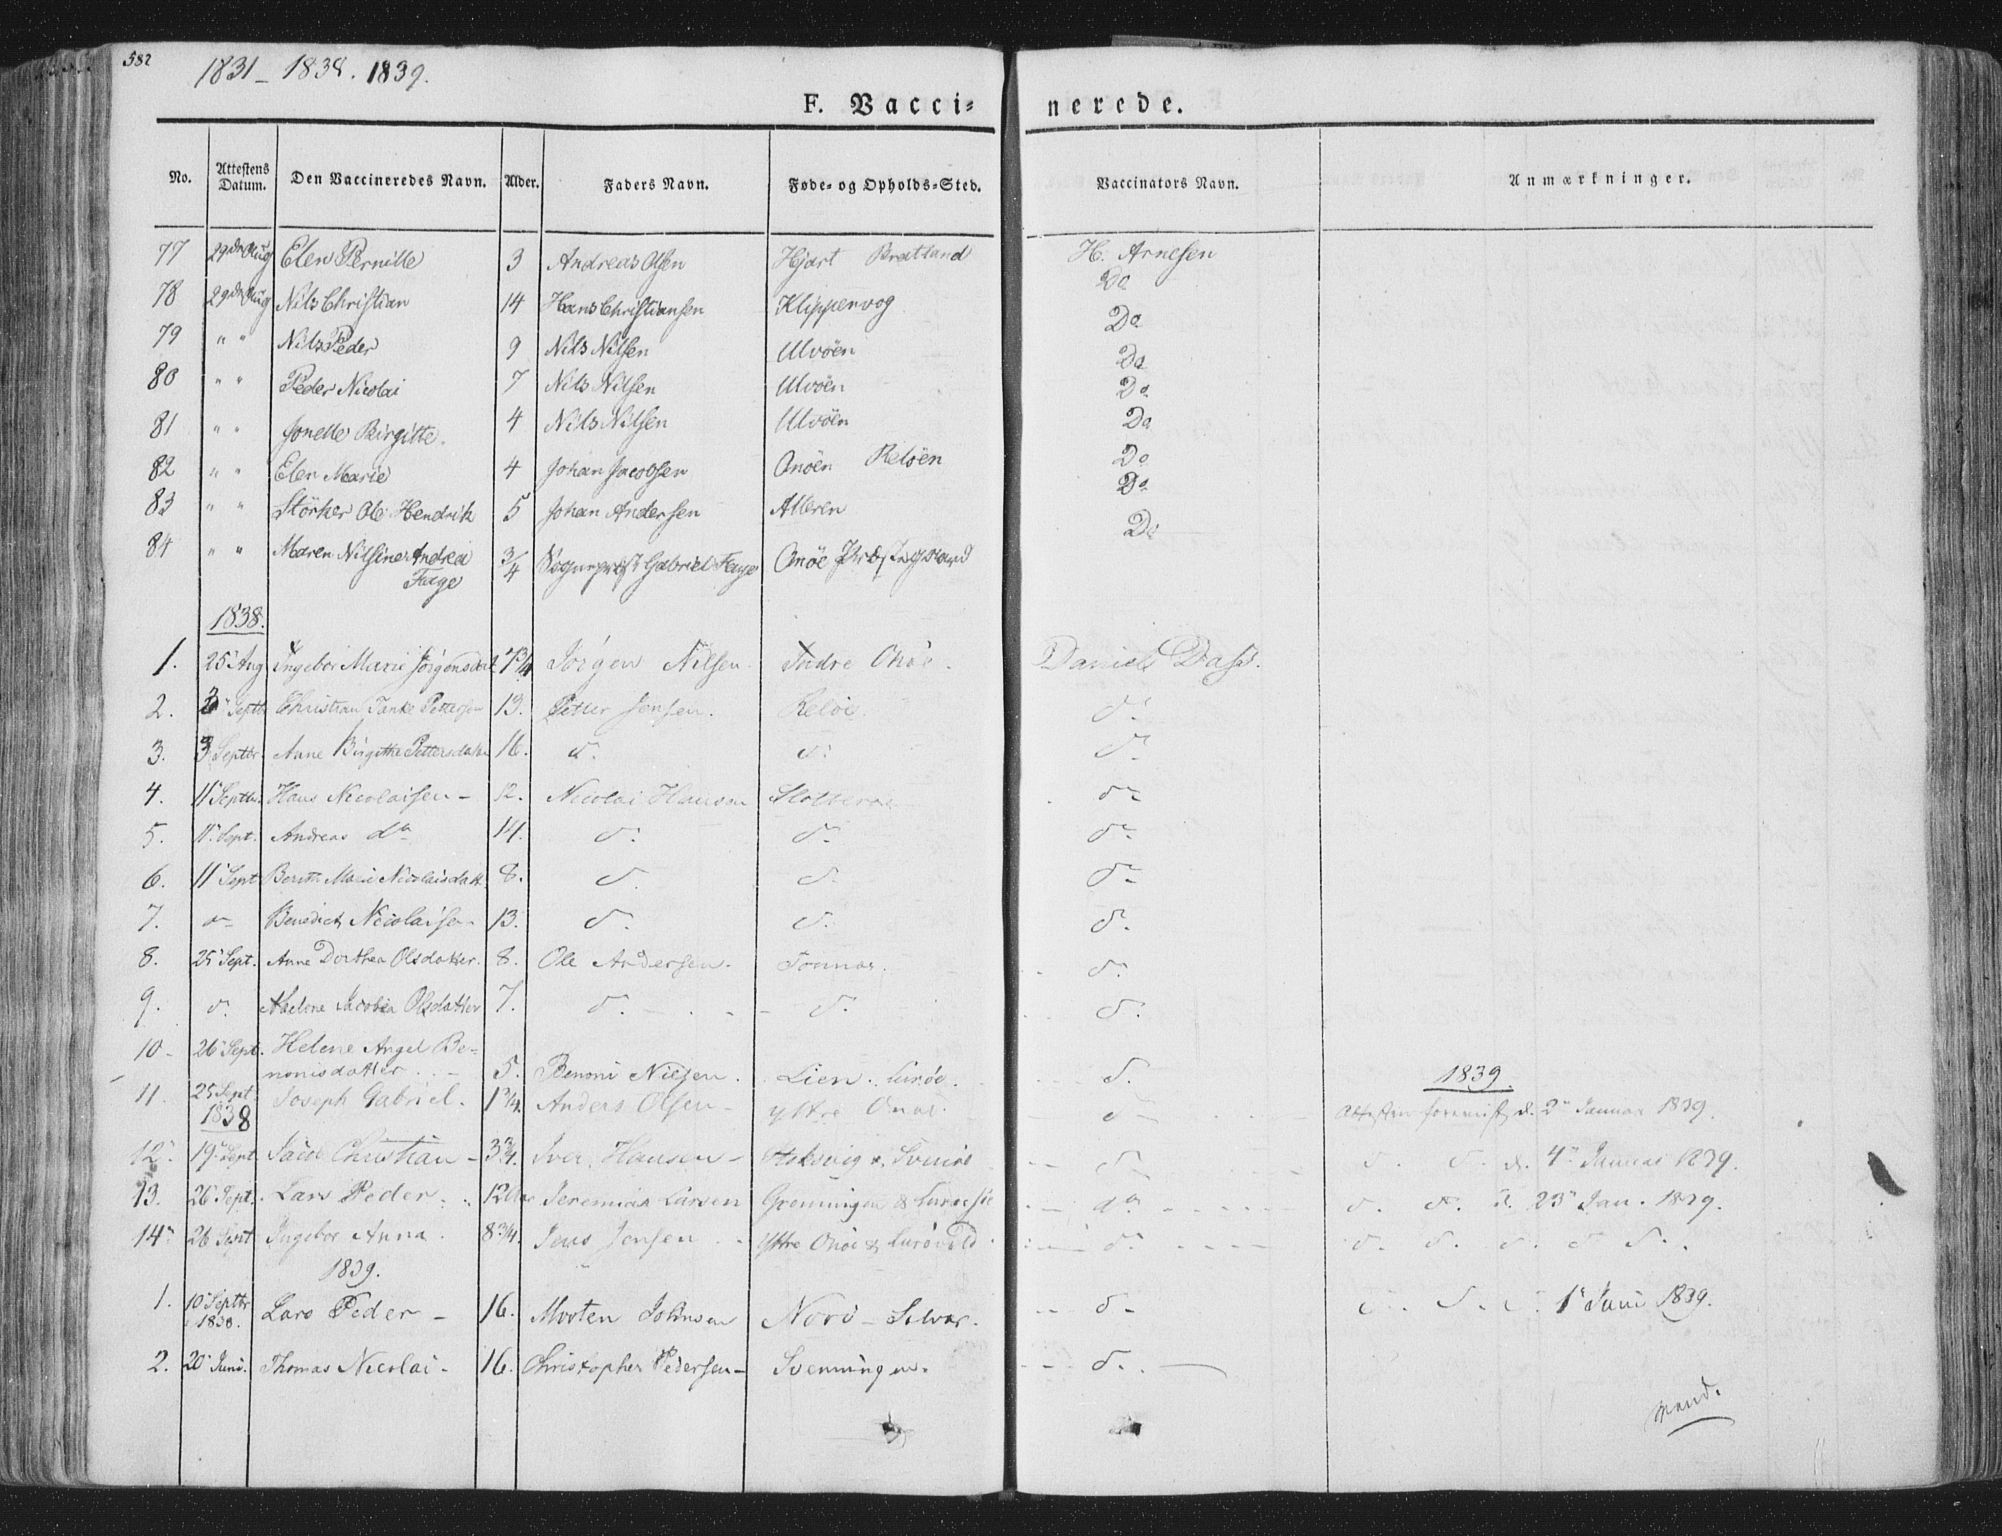 582
1831 - 1838. 1839.
F. Vacci= nerede.
No. Attestens Datum. Den Vaccineredes Navn. Alder. Faders Navn. Føde= og Opholds=Sted. Vaccinators Navn. Anmærkninger.
77 29de Aug Elen Pernille 3 Andreas Olsen Hjart Bratland H. Arnesen
78 29de Aug Nils Christian 14 Hans Christiansen Klippenvog Do
79 " " Nils Peder 9 Nils Nilsen Ulvöen Do
80 " " Peder Nicolai 7 Nils Nilsen Ulvöen Do
81 " " Jonette Birgitte. 4 Nils Nilsen Ulvöen Do
82 " " Elen Marie 4 Johan Jacobsen Onöen Relöen Do
83 " " Störker Ole Hendrik 5 Johan Andersen Alteren Do
84 " " Maren Nilsine Andrea Fage 3/4 Gabriel Fage Onöe Præstegaard Do
1838.
1. 25 Aug Ingebor Marie Jörgensdat 7 3/4 Jörgen Nilsen. Indre Onöe. Daniel Dass.
2. 3 Septb Christian Tanke Pettersen 13. Petter Jensen. Relöe. do
3. 3 Septbr. Anne Birgitte Pettersdatter 16. do do do
4. 11 Septbr. Hans Nicolaisen - 12. Nicolai Hansen do
5. 11 Sept. Andreas do 14. do do do
6. 11 Sept Bereth Marie Nicolaisdatt 8. do do do
7. do Benedict Nicolaisen 13. do do do
8. 25 Sept. Anne Dorthea Olsdatter. 8. Ole Andersen. Tonnes. do
9. do Jacobia Olsdatter 7. do do do
10 - 26 Sept. Helene Angel Be=
nonisdatter 5. Benoni Nilsen. Lien. Luröe. do 1839.
11. 25 Sept. 1838 Joseph Gabriel. 1 3/4. Anders Olsen - Yttre Onöe. do Attesten d. 2 Januar 1839.
12. 19 Sept Jacob Christian - 3 3/4. Iver Hansen - do do do d. 4 Januar 1839.
13. 26 Sept. Lars Peder 12 Aar Jeremias Larsen Grönningen & do do do d. 23 Jan. 1839.
14 26 Sept Ingebor Anna. 8 3/4. Jens Jensen Yttre Onöe & do do do do do do
1839.
1. 10 Septbr 1838. Lars Peder - 16. Morten Johnsen Norö - Selvær. do do do do 1 Juni 1839.
2. 20 Juni. Thomas Nicolai - 16. Christopher Pedersen - Svenningen. do
Vend.